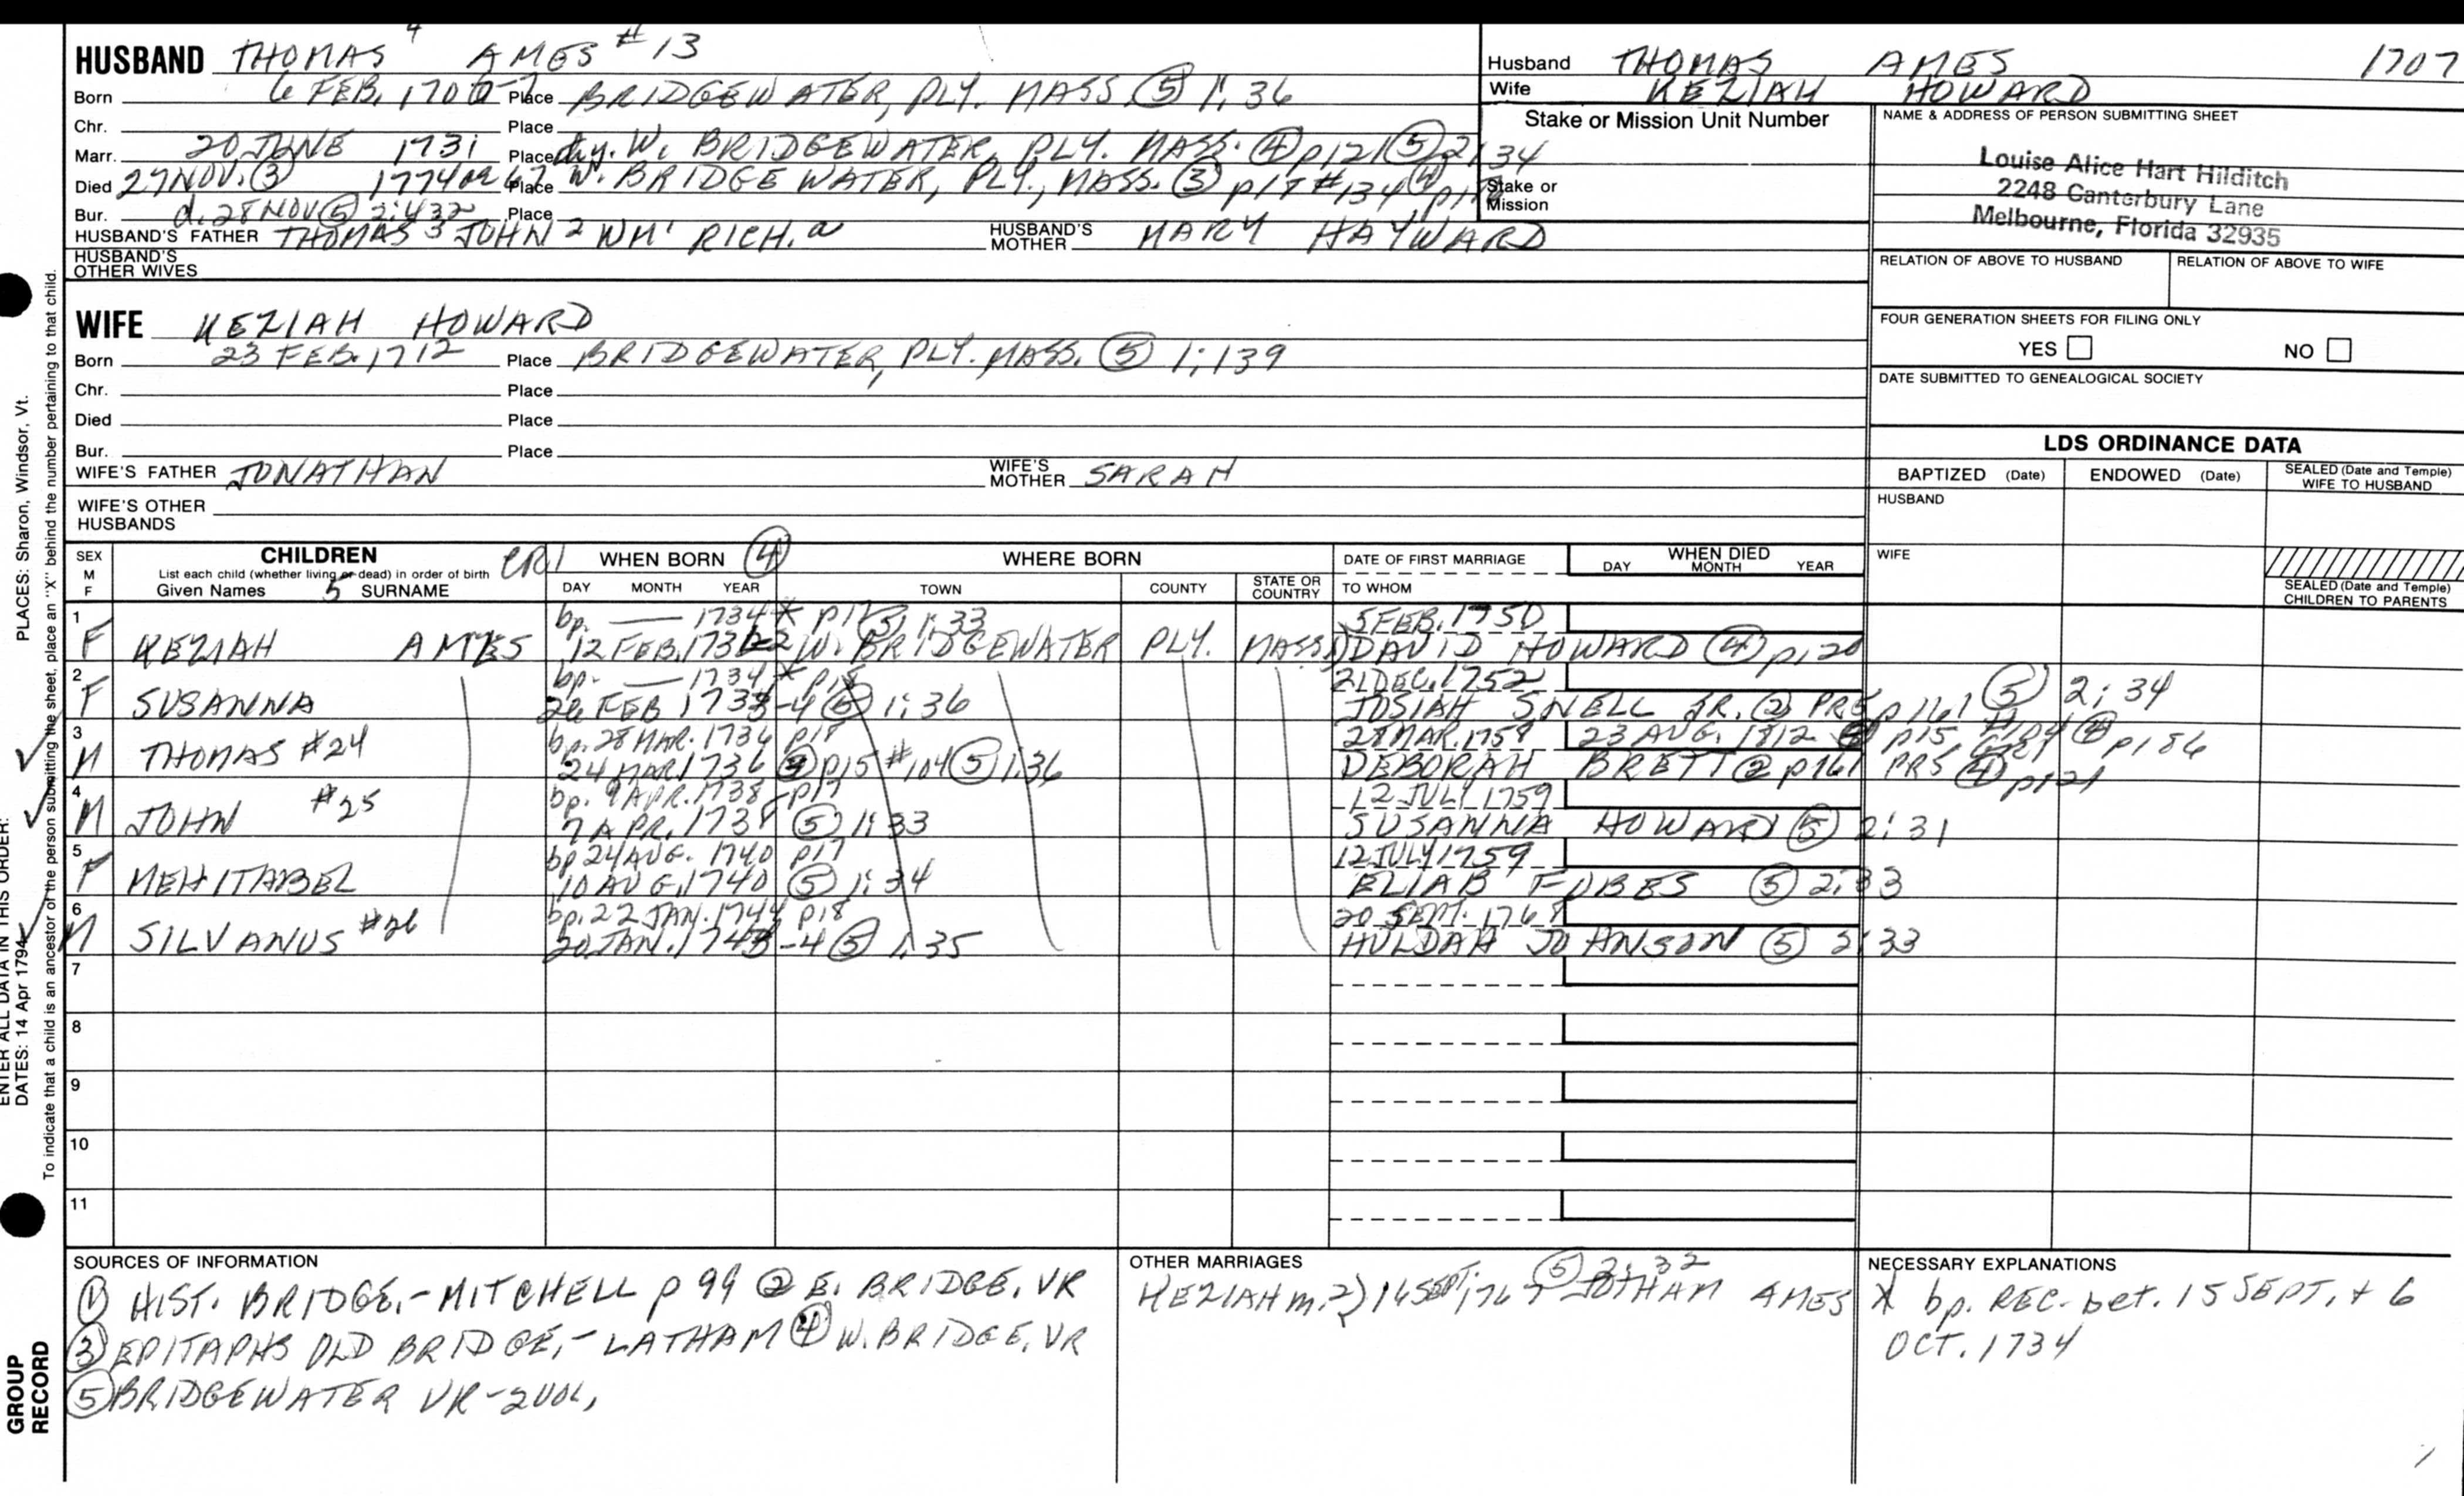 HUSBAND THOMAS 4 AMES #13
Born 6 FEB. 1706-7 Place BRIDGEWATER, PLY. MASS. (5) 1:36
Chr. Place
Marr. 20 JUNE 1731 Place W. BRIDGEWATER, PLY. MASS. (4) p121 (5) 2:34
Died 27 NOV. (3) 1774 OR 67 Place W. BRIDGEWATER, PLY., MASS. (3) p17 #134 (4)
Bur. d. 28 NOV (5) 2:432 Place
HUSBAND'S FATHER THOMAS 3 JOHN 2 WM 1 RICH. a HUSBAND'S MOTHER MARY HAYWARD
HUSBAND'S OTHER WIVES
Husband THOMAS AMES 1707
Wife KEZIAH HOWARD
Stake or Mission Unit Number
Stake or Mission
NAME & ADDRESS OF PERSON SUBMITTING SHEET
Louise Alice Hart Hilditch
2248 Canterbury Lane
Melbourne, Florida 32935
RELATION OF ABOVE TO HUSBAND RELATION OF ABOVE TO WIFE
FOUR GENERATION SHEETS FOR FILING ONLY
YES NO
DATE SUBMITTED TO GENEALOGICAL SOCIETY
WIFE KEZIAH HOWARD
Born 23 FEB. 1712 Place BRIDGEWATER, PLY. MASS. (5) 1:139
Chr. Place
Died Place
Bur. Place
WIFE'S FATHER JONATHAN WIFE'S MOTHER SARAH
WIFE'S OTHER HUSBANDS
LDS ORDINANCE DATA
BAPTIZED (Date) ENDOWED (Date) SEALED (Date and Temple) WIFE TO HUSBAND
HUSBAND
WIFE
SEALED (Date and Temple) CHILDREN TO PARENTS
SEX M F
CHILDREN CR1
List each child (whether living or dead) in order of birth
Given Names 5 SURNAME
WHEN BORN (4)
DAY MONTH YEAR
WHERE BORN
TOWN COUNTY STATE OR COUNTRY
DATE OF FIRST MARRIAGE
TO WHOM
WHEN DIED
DAY MONTH YEAR
1 bp. — 1734 * p17 (5) 1:33 5 FEB. 1750
F KEZIAH AMES 12 FEB. 1731-2 W. BRIDGEWATER PLY. MASS. DAVID HOWARD (4) p120
2 bp. — 1734 * p18 21 DEC. 1752
F SUSANNA 26 FEB 1733-4 (5) 1:36 JOSIAH SNELL JR. (2) PR5 p161 (5) 2:34
3 bp. 28 MAR. 1736 p18 28 MAR. 1758 23 AUG. 1812 p15 #104 (4) p186
M THOMAS #24 24 MAR 1736 p15 #104 (5) 1:36 DEBORAH BRETT (2) p161 PR5 (4) p121
4 bp. 9 APR. 1738 p17 12 JULY 1759
M JOHN #25 7 APR. 1738 (5) 1:33 SUSANNA HOWARD (5) 2:31
5 bp 24 AUG. 1740 p17 12 JULY 1759
F MEHITABEL 10 AUG. 1740 (5) 1:34 ELIAB FOBES (5) 2:33
6 bp. 22 JAN. 1744 p18 20 SEPT. 1768
M SILVANUS #26 20 JAN. 1743-4 (5) 1:35 HULDAH JOHNSON (5) 2:33
7
8
9
10
11
SOURCES OF INFORMATION
(1) HIST. BRIDGE.-MITCHELL p 99 (2) E. BRIDGE. VR
(3) EPITAPHS OLD BRIDGE,-LATHAM (4) W. BRIDGE. VR
(5) BRIDGEWATER VR-2VOL,
OTHER MARRIAGES
(5) 2:32
KEZIAH m. 2) 14 SEPT. JOTHAM AMES
NECESSARY EXPLANATIONS
* bp. REC. bet. 15 SEPT. + 6
OCT. 1734
ENTER ALL DATA IN THIS ORDER:
DATES: 14 Apr 1794
PLACES: Sharon, Windsor, Vt.
To indicate that a child is an ancestor of the person submitting the sheet, place an "X" behind the number pertaining to that child.
GROUP RECORD